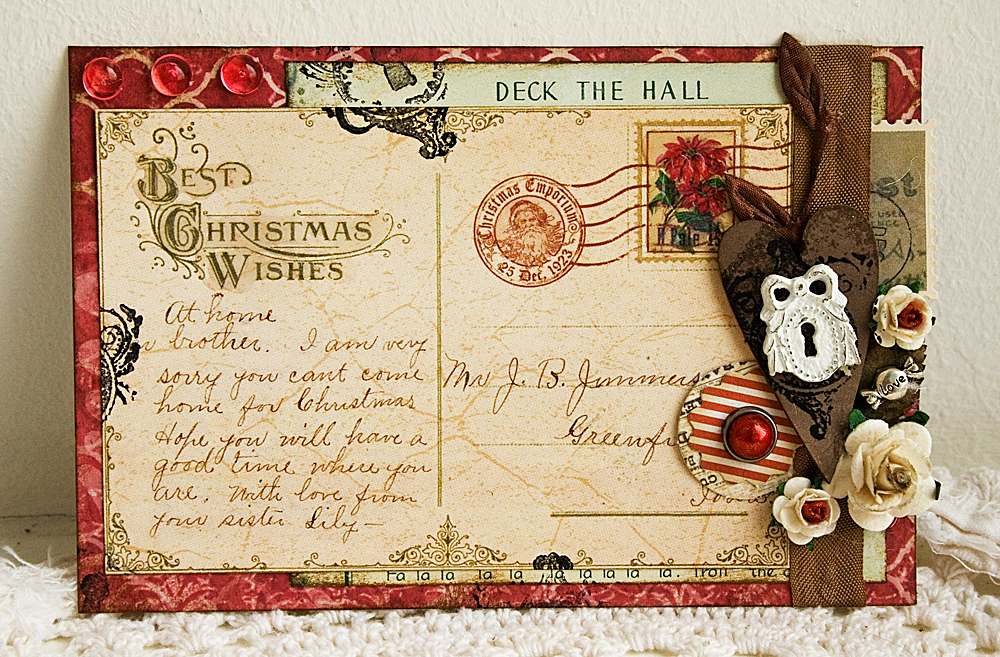 DECK THE HALL
BEST
CHRISTMAS
WISHES
Christmas Emporium
25 Dec, 1923
At home
brother. I am very
sorry you cant come
home for Christmas
Hope you will have a
good time where you
are. With love from
your sister Lily—
Mr J. B. Jimmers
Greenfi
love
USED
Fa la la la la la la la la. Troll the a